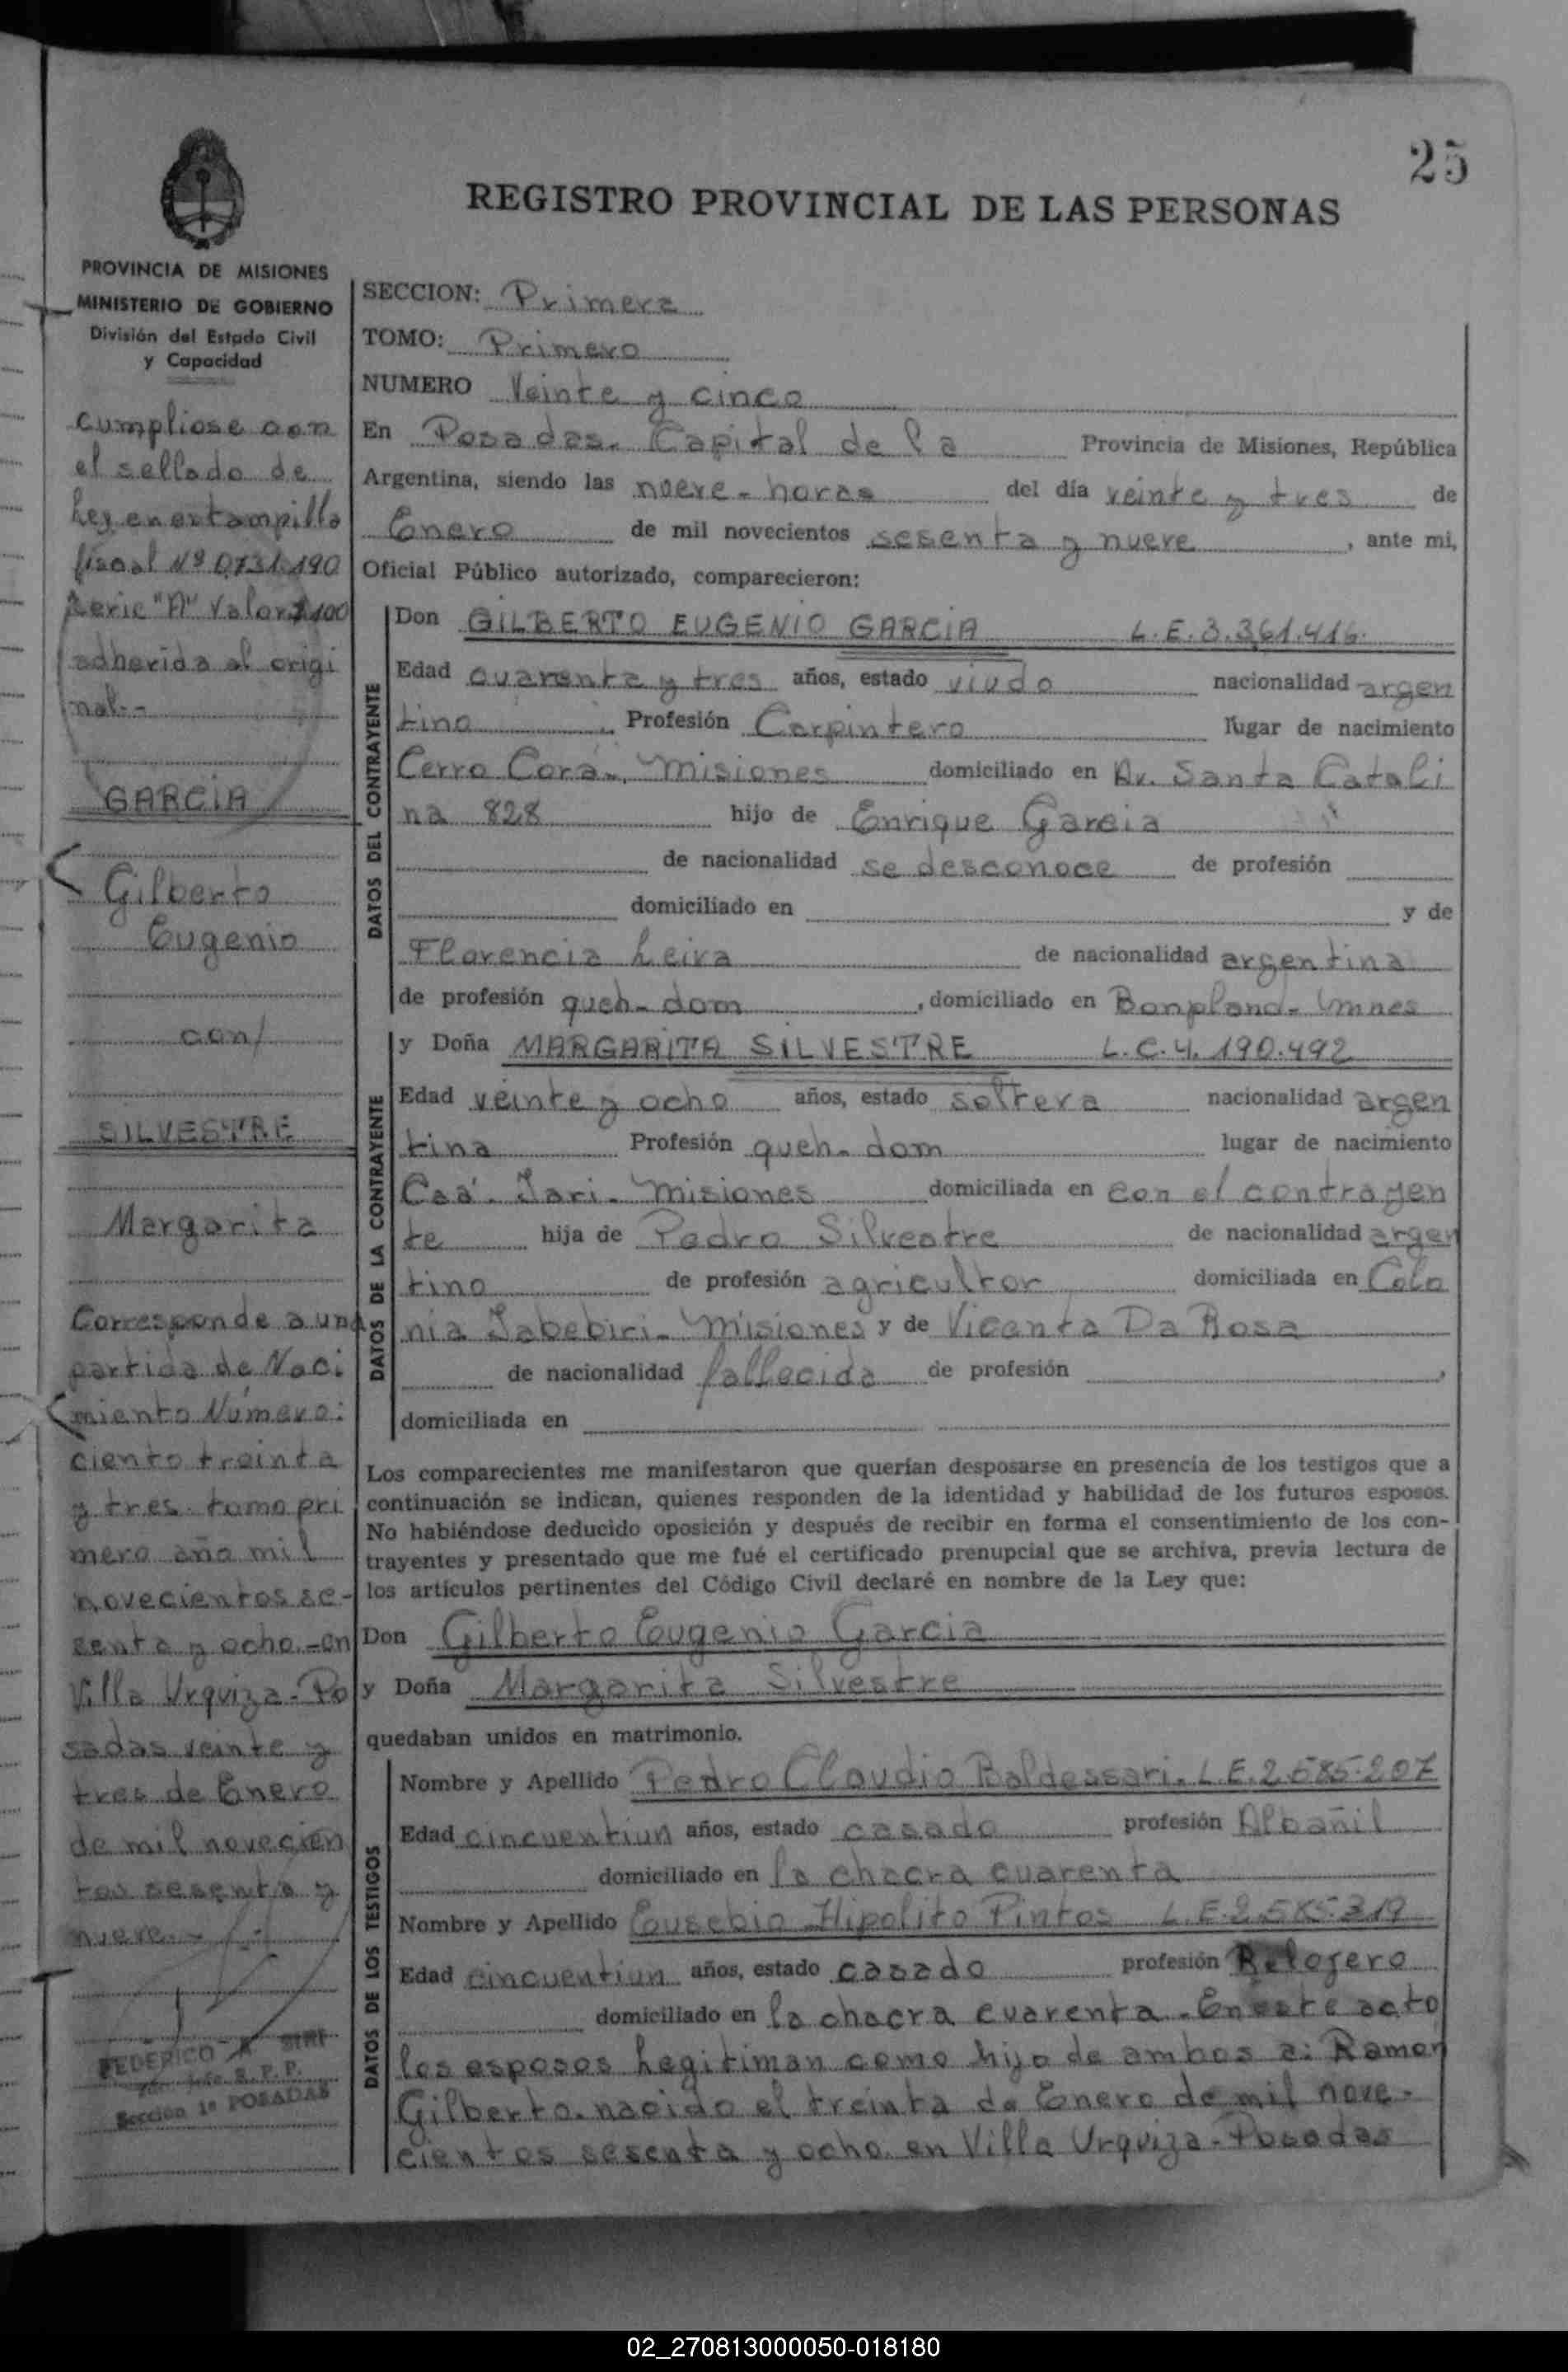 25
REGISTRO PROVINCIAL DE LAS PERSONAS
PROVINCIA DE MISIONES
MINISTERIO DE GOBIERNO
División del Estado Civil
y Capacidad
cumpliose con
el sellado de
Ley en estampilla
fiscal Nº 0.731.190
Serie "A" Valor $100
adherida al origi
nal.-
GARCIA
Gilberto
Eugenio
con/
SILVESTRE
Margarita
Corresponde a una
partida de Naci
miento Número:
ciento treinta
y tres. tomo pri
mero año mil
novecientos se-
senta y ocho.-en
Villa Urquiza-Po
sadas veinte y
tres de Enero
de mil novecien
tos sesenta y
nueve.-
FEDERICO A. SIRI
Jefe R. P. P.
Sección 1ª POSADAS
SECCION: Primera
TOMO: Primero
NUMERO Veinte y cinco
En Posadas. Capital de la Provincia de Misiones, República
Argentina, siendo las nueve-horas del día veinte y tres de
Enero de mil novecientos sesenta y nueve, ante mi,
Oficial Público autorizado, comparecieron:
DATOS DEL CONTRAYENTE
Don GILBERTO EUGENIO GARCIA L.E.3.361.416.
Edad cuarenta y tres años, estado viudo nacionalidad argen
tino. Profesión Carpintero lugar de nacimiento
Cerro Corá-, Misiones domiciliado en Av. Santa Catali
na 828 hijo de Enrique Garcia
de nacionalidad se desconoce de profesión
domiciliado en y de
Florencia Leiva de nacionalidad argentina
de profesión queh-dom, domiciliado en Bonpland-Mnes
DATOS DE LA CONTRAYENTE
y Doña MARGARITA SILVESTRE L.C.4.190.492
Edad veinte y ocho años, estado soltera nacionalidad argen
tina Profesión queh-dom lugar de nacimiento
Caá-Yari-Misiones domiciliada en con el contrayen
te hija de Pedro Silvestre de nacionalidad argen
tino de profesión agricultor domiciliada en Colo
nia Yabebiri-Misiones y de Vicenta Da Rosa
de nacionalidad fallecida de profesión ,
domiciliada en
Los comparecientes me manifestaron que querían desposarse en presencia de los testigos que a
continuación se indican, quienes responden de la identidad y habilidad de los futuros esposos.
No habiéndose deducido oposición y después de recibir en forma el consentimiento de los con-
trayentes y presentado que me fué el certificado prenupcial que se archiva, previa lectura de
los artículos pertinentes del Código Civil declaré en nombre de la Ley que:
Don Gilberto Eugenio Garcia
y Doña Margarita Silvestre
quedaban unidos en matrimonio.
DATOS DE LOS TESTIGOS
Nombre y Apellido Pedro Claudio Baldessari. L.E.2.585.207
Edad cincuentiun años, estado casado profesión Albañil
domiciliado en la chacra cuarenta
Nombre y Apellido Eusebio Hipolito Pintos L.E.2.585.319
Edad cincuentiun años, estado casado profesión Relojero
domiciliado en la chacra cuarenta.-En este acto
los esposos Legitiman como hijo de ambos a: Ramon
Gilberto. nacido el treinta de Enero de mil nove-
cientos sesenta y ocho en Villa Urquiza-Posadas
02_270813000050-018180